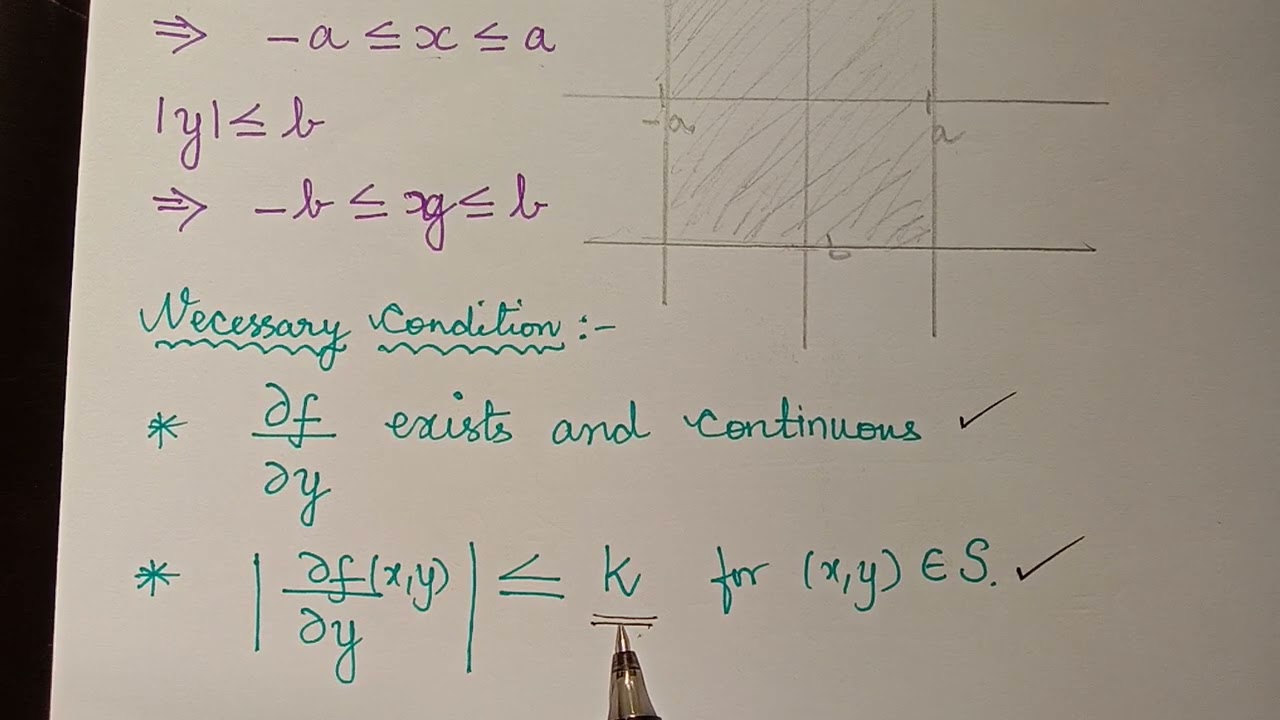 ⇒ -a ≤ x ≤ a
|y| ≤ b
⇒ -b ≤ xy ≤ b
-a
a
b
Necessary Condition :-
* ∂f/∂y exists and continuous ✓
* |∂f(x,y)/∂y| ≤ k for (x,y) ∈ S. ✓